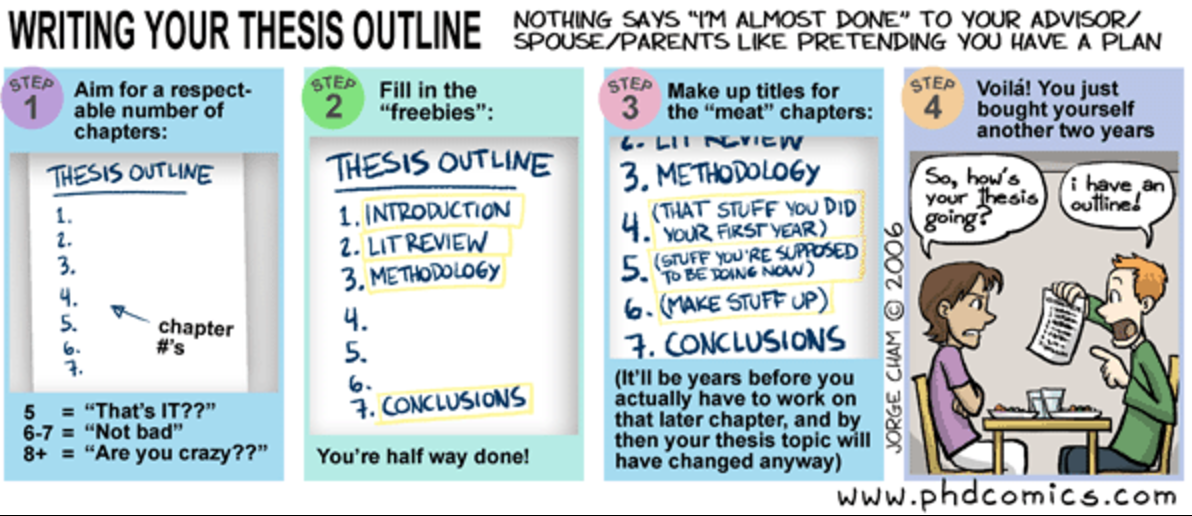 WRITING YOUR THESIS OUTLINE
NOTHING SAYS "I'M ALMOST DONE" TO YOUR ADVISOR/
SPOUSE/PARENTS LIKE PRETENDING YOU HAVE A PLAN
STEP
1
Aim for a respect-
able number of
chapters:
THESIS OUTLINE
1.
2.
3.
4.
5.
6.
7.
chapter
#'s
5 = "That's IT??"
6-7 = "Not bad"
8+ = "Are you crazy??"
STEP
2
Fill in the
"freebies":
THESIS OUTLINE
1. INTRODUCTION
2. LIT REVIEW
3. METHODOLOGY
4.
5.
6.
7. CONCLUSIONS
You're half way done!
STEP
3
Make up titles for
the "meat" chapters:
2. LIT REVIEW
3. METHODOLOGY
4. (THAT STUFF YOU DID
YOUR FIRST YEAR)
5. (STUFF YOU'RE SUPPOSED
TO BE DOING NOW)
6. (MAKE STUFF UP)
7. CONCLUSIONS
(It'll be years before you
actually have to work on
that later chapter, and by
then your thesis topic will
have changed anyway)
STEP
4
Voilá! You just
bought yourself
another two years
So, how's
your thesis
going?
i have an
outline!
JORGE CHAM © 2006
www.phdcomics.com